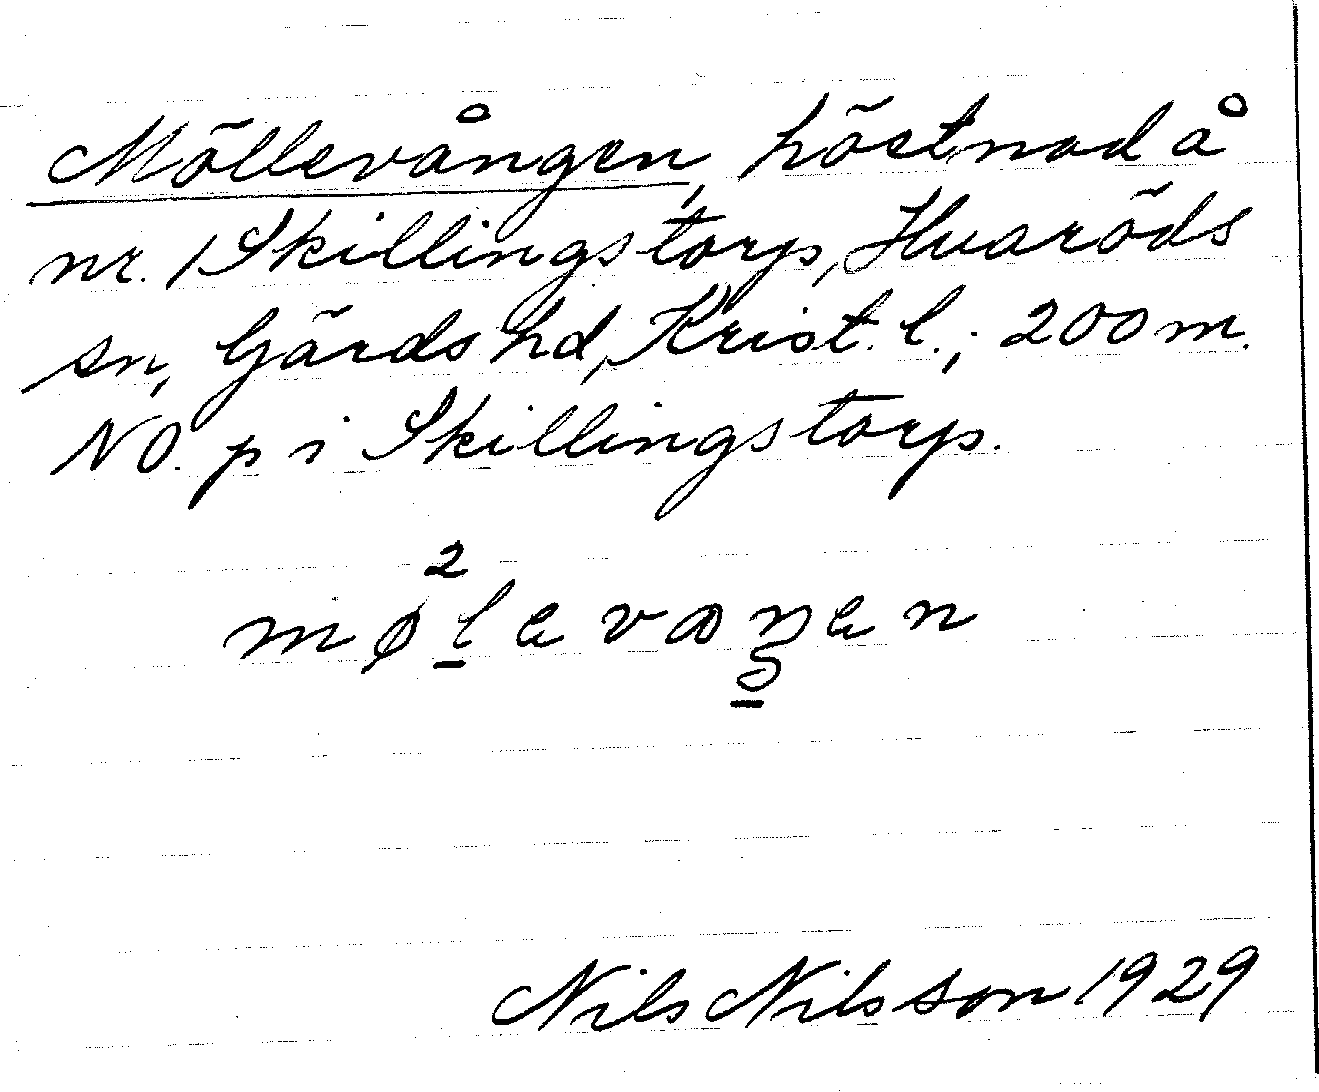 Möllevången, höstnad å
nr. 1 Skillingstorp, Huaröds
sn, Gärds hd, Krist. l.; 200 m.
NO. p i Skillingstorp.
Nils Nilsson 1929